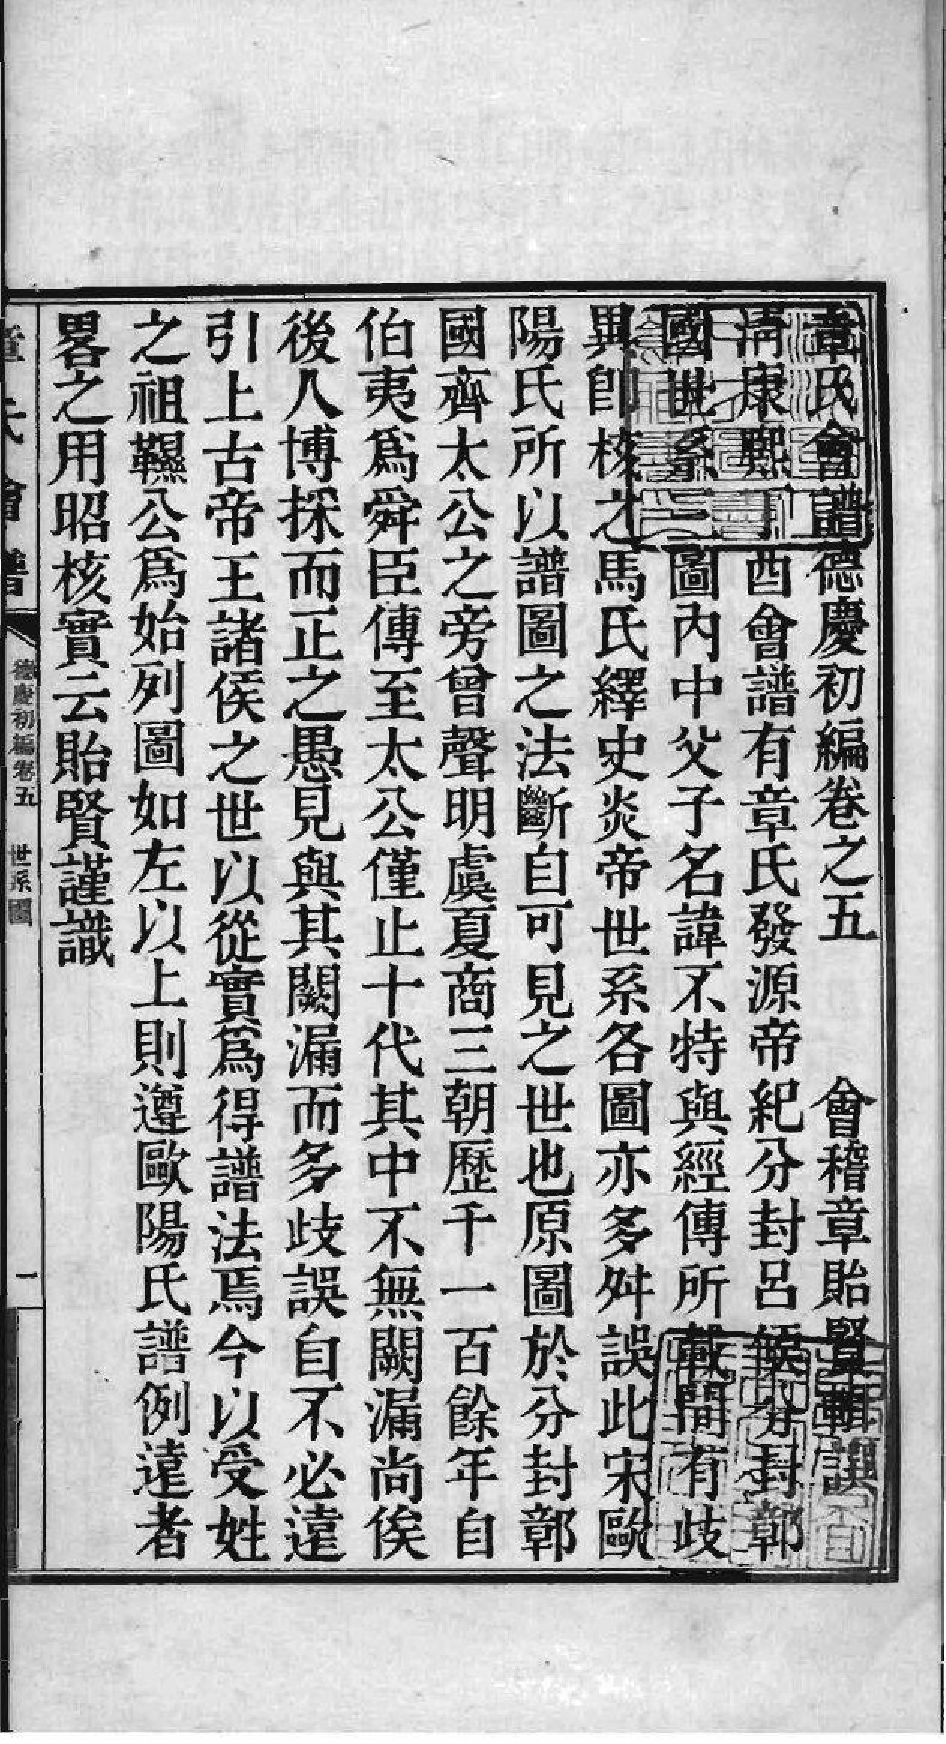 章氏會譜德慶初編卷之五　會稽章貽賢輯譔
清康熙丁酉會譜有章氏發源帝紀分封呂侯分封鄣
國世系三圖內中父子名諱不特與經傳所載間有歧
異卽核之馬氏繹史炎帝世系各圖亦多舛誤此宋歐
陽氏所以譜圖之法斷自可見之世也原圖於分封鄣
國齊太公之旁曾聲明虞夏商三朝歷千一百餘年自
伯夷爲舜臣傳至太公僅止十代其中不無闕漏尚俟
後人博採而正之愚見與其闕漏而多歧誤自不必遠
引上古帝王諸侯之世以從實爲得譜法焉今以受姓
之祖韅公爲始列圖如左以上則遵歐陽氏譜例遠者
畧之用昭核實云貽賢謹識
章氏會譜
德慶初編卷五　世系圖
一